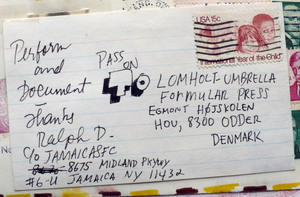 Perform
and
Document
Thanks
Ralph D.
C/O JAMAICASFC
8675 MIDLAND PKYWY
#6-U JAMAICA NY 11432
PASS
ON
USA 15c
International Year of the Child
LOMHOLT-UMBRELLA
FORMULAR PRESS
EGMONT HØJSKOLEN
HOU, 8300 ODDER
DENMARK